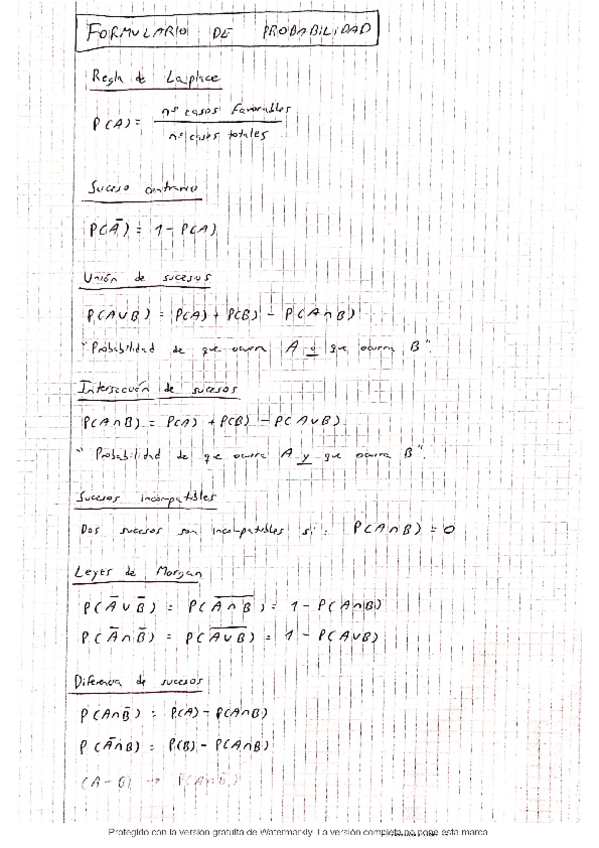 FORMULARIO DE PROBABILIDAD
Regla de Laplace
P(A) = nº casos favorables / nº casos totales
Suceso contrario
P(A̅) = 1 - P(A)
Unión de sucesos
P(A∪B) = P(A) + P(B) - P(A∩B)
"Probabilidad de que ocurra A o que ocurra B".
Intersección de sucesos
P(A∩B) = P(A) + P(B) - P(A∪B)
"Probabilidad de que ocurra A y que ocurra B".
Sucesos incompatibles
Dos sucesos son incompatibles si: P(A∩B) = 0
Leyes de Morgan
P(A̅∪B̅) = P(A̅∩̅B̅) = 1 - P(A∩B)
P(A̅∩B̅) = P(A̅∪̅B̅) = 1 - P(A∪B)
Diferencia de sucesos
P(A∩B̅) = P(A) - P(A∩B)
P(A̅∩B) = P(B) - P(A∩B)
(A-B) → P(A∩B̅)
Protegido con la versión gratuita de Watermarkly. La versión completa no pone esta marca.